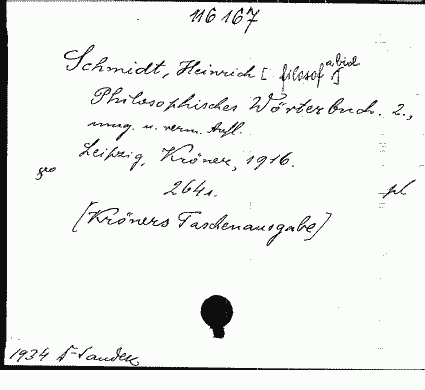 116167
Schmidt, Heinrich [filosof]
Philosophisches Wörterbuch. 2.,
umg. u. verm. Aufl.
Leipzig, Kröner, 1916.
264 s.
[Kröners Taschenausgabe]
1934